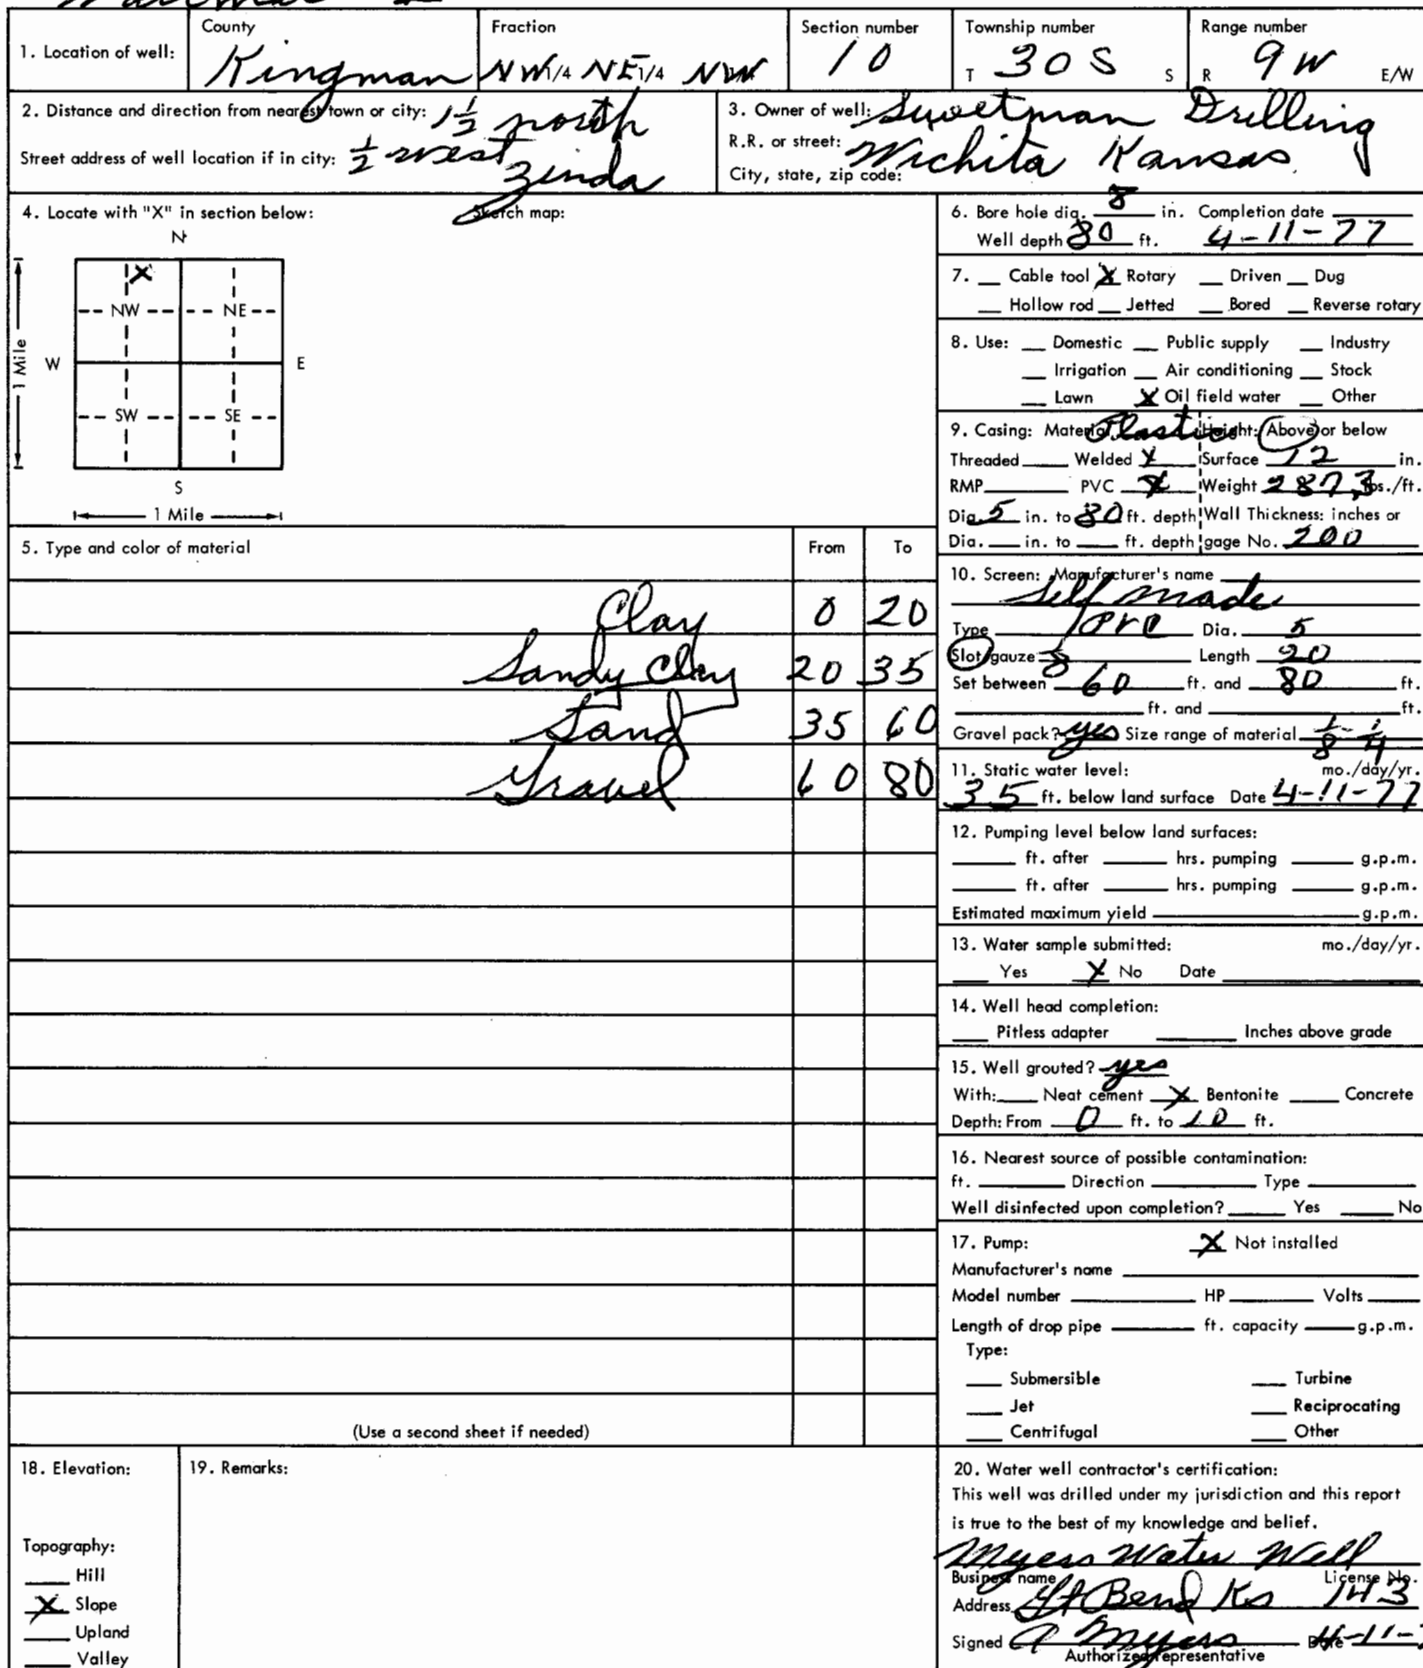 County Fraction Section number Township number Range number
1. Location of well: Kingman NW 1/4 NE 1/4 NW 10 T 30 S S R 9 W E/W
2. Distance and direction from nearest town or city: 1 1/2 north
Street address of well location if in city: 1/2 west
Zenda
3. Owner of well: Sweetman Drilling
R.R. or street:
City, state, zip code: Wichita Kansas
4. Locate with "X" in section below: Sketch map:
N
X
NW NE
1 Mile W E
SW SE
S
1 Mile
5. Type and color of material From To
Clay 0 20
Sandy Clay 20 35
Sand 35 60
Gravel 60 80
(Use a second sheet if needed)
6. Bore hole dia. 8 in. Completion date
Well depth 80 ft. 4-11-77
7. Cable tool X Rotary Driven Dug
Hollow rod Jetted Bored Reverse rotary
8. Use: Domestic Public supply Industry
Irrigation Air conditioning Stock
Lawn X Oil field water Other
9. Casing: Material Plastic Height: Above or below
Threaded Welded X Surface 12 in.
RMP PVC X Weight 287.3 lbs./ft.
Dia. 5 in. to 80 ft. depth Wall Thickness: inches or
Dia. in. to ft. depth gage No. 200
10. Screen: Manufacturer's name
Self made
Type PVC Dia. 5
Slot/gauze 8 Length 20
Set between 60 ft. and 80 ft.
ft. and ft.
Gravel pack? yes Size range of material 1/8 - 1/4
11. Static water level: mo./day/yr.
35 ft. below land surface Date 4-11-77
12. Pumping level below land surfaces:
ft. after hrs. pumping g.p.m.
ft. after hrs. pumping g.p.m.
Estimated maximum yield g.p.m.
13. Water sample submitted: mo./day/yr.
Yes X No Date
14. Well head completion:
Pitless adapter Inches above grade
15. Well grouted? yes
With: Neat cement X Bentonite Concrete
Depth: From 0 ft. to 10 ft.
16. Nearest source of possible contamination:
ft. Direction Type
Well disinfected upon completion? Yes No
17. Pump: X Not installed
Manufacturer's name
Model number HP Volts
Length of drop pipe ft. capacity g.p.m.
Type:
Submersible Turbine
Jet Reciprocating
Centrifugal Other
18. Elevation:
Topography:
Hill
X Slope
Upland
Valley
19. Remarks:
20. Water well contractor's certification:
This well was drilled under my jurisdiction and this report
is true to the best of my knowledge and belief.
Myers Water Well
Business name License No.
Address Gt Bend Ks 143
Signed A Myers Date 4-11-
Authorized representative